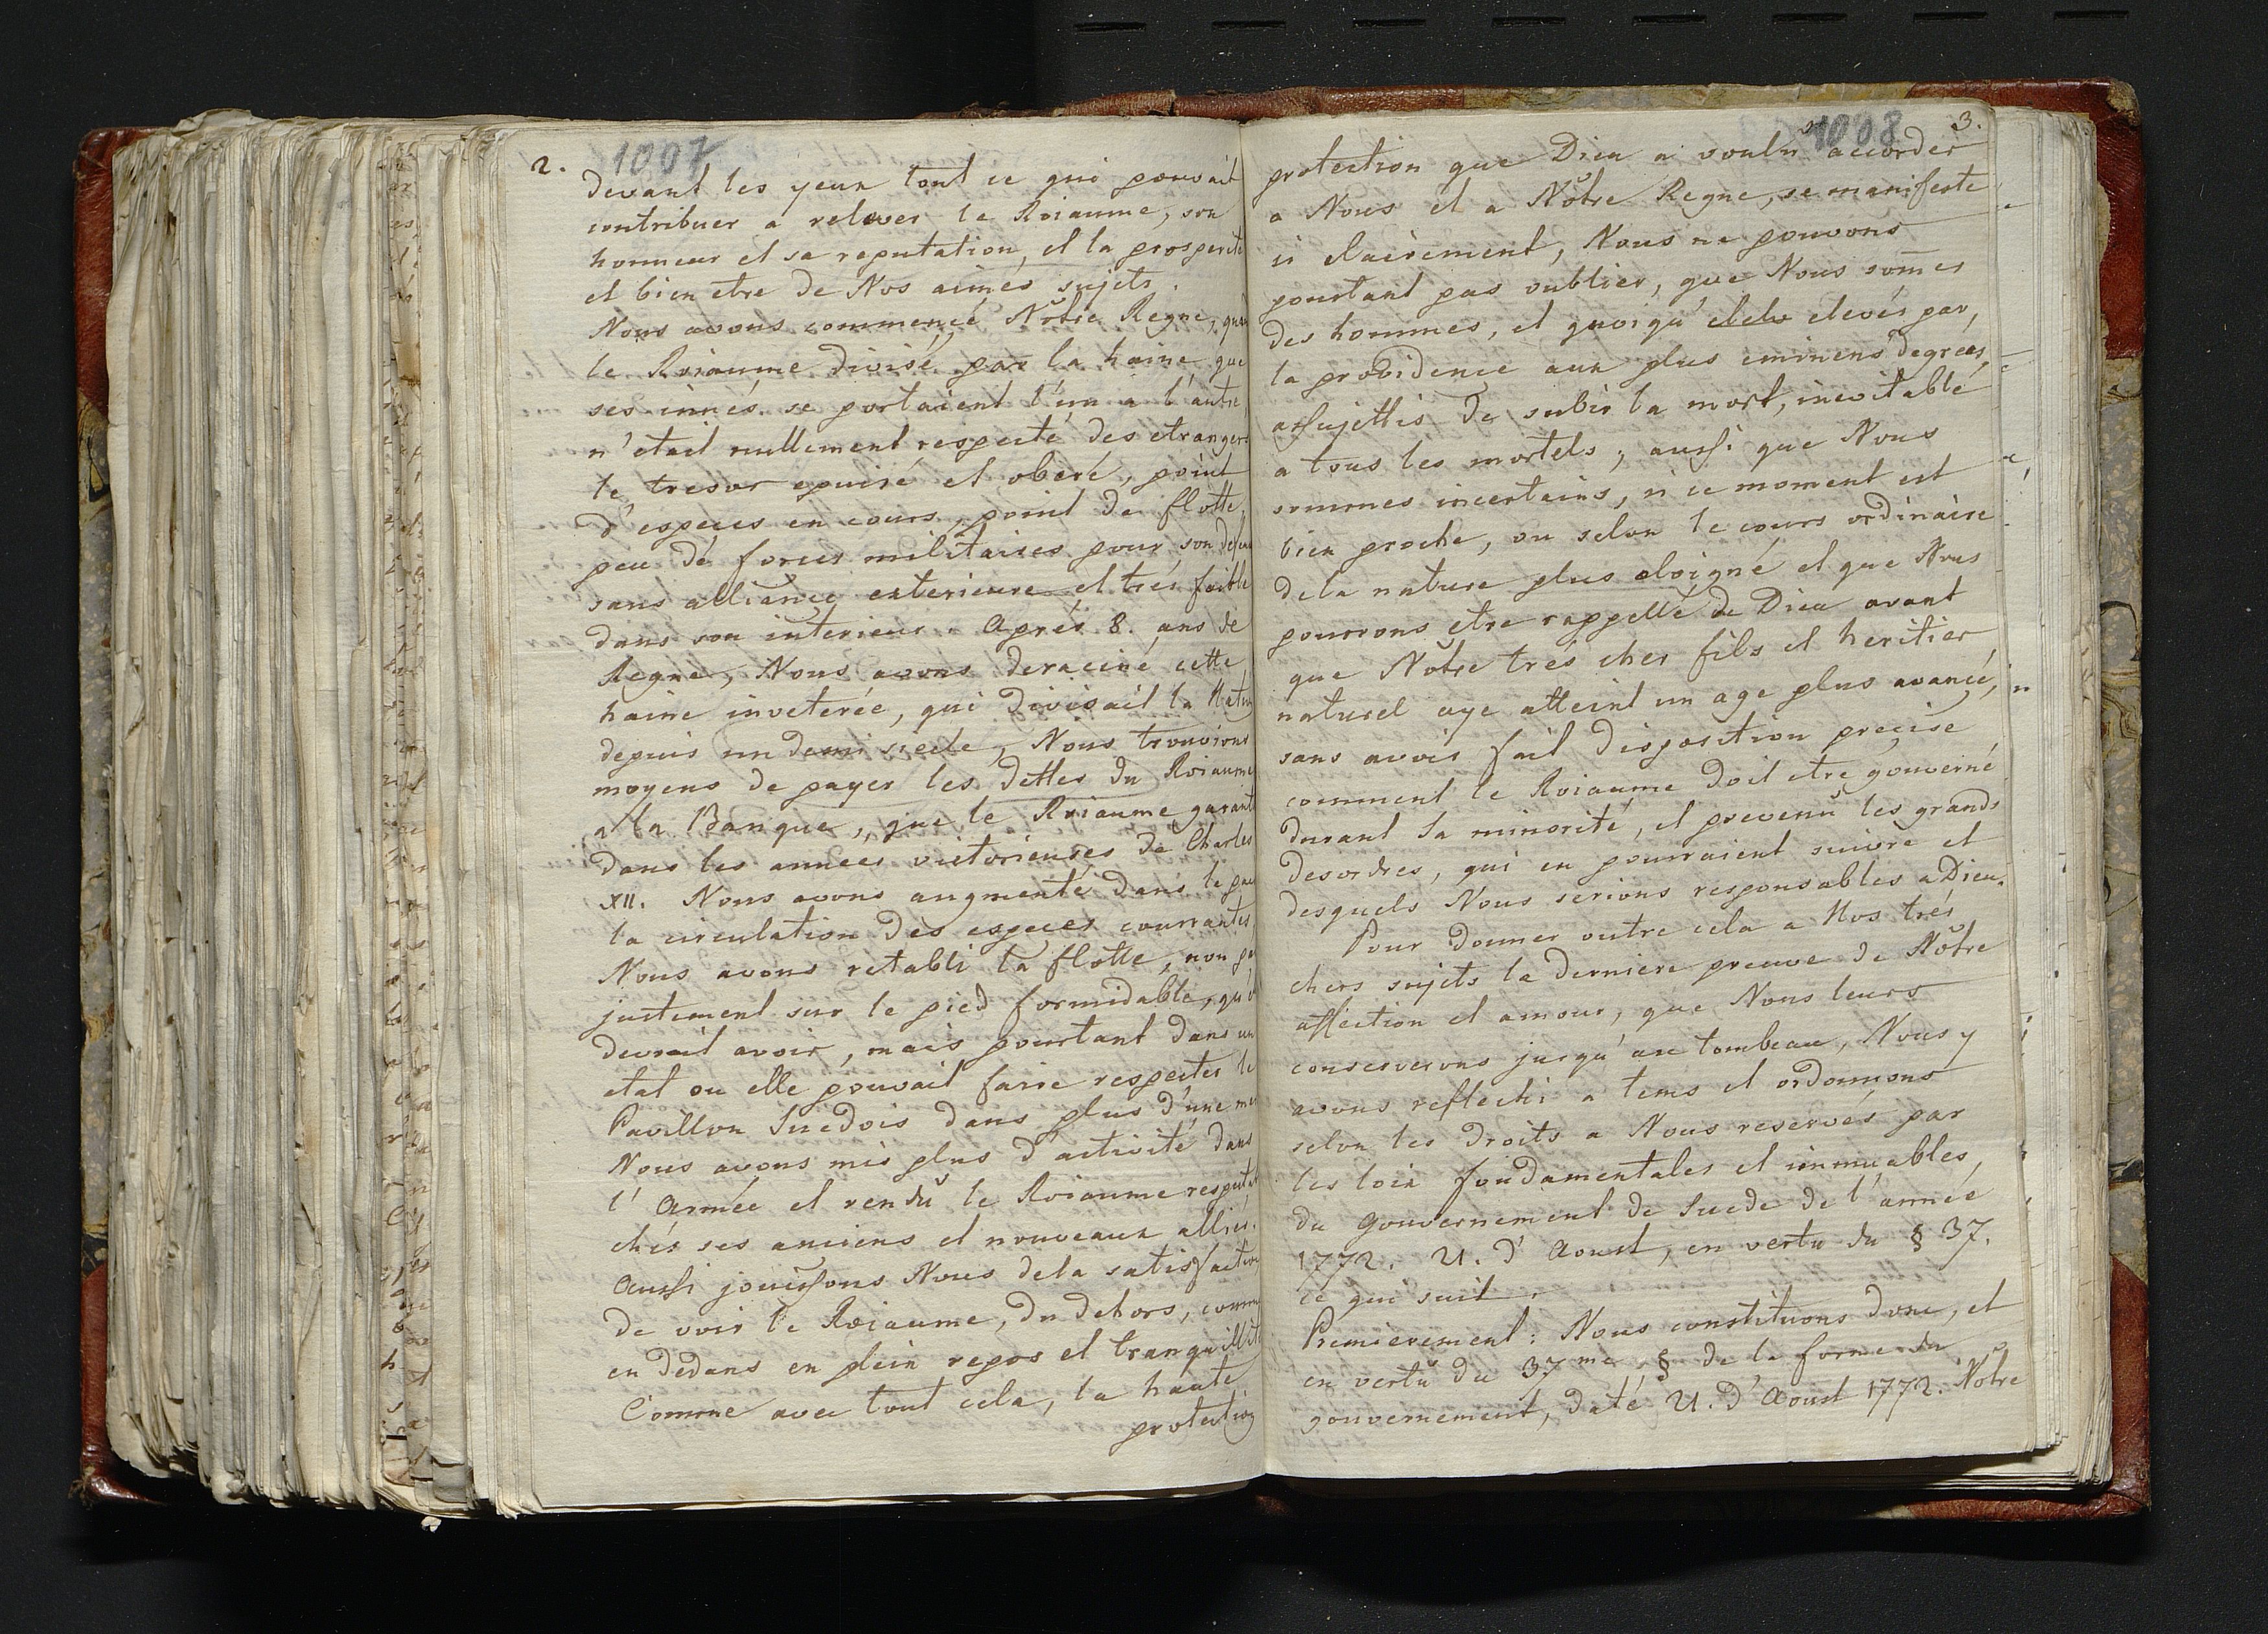 2.
1007
devant les yeux tout ce qui pouvait
contribuer a relever le Roiaume, son
honneur et sa reputation, et la prosperité
et bien etre de Nos aimés sujets.
Nous avons commencé Nôtre Regne,
le Roiaume divisé par la haine que
ses innés se portaient l'un a l'autre
n'etait nullement respecté des etrangers
le tresor epuisé et oberé, point
d'especes en cours, point de flotte,
peu de forces militaires pour son
sans alliance exterieure et trés faible
dans son interieur. Aprés 8. ans de
Regne, Nous avons deraciné cette
haine inveterée, qui divisait la
depuis un demi siecle, Nous trouvions
moyens de payer les dettes du Roiaume
a la Banque, que le Roiaume garant
dans les annees victorieuses de Charles
XII. Nous avons augmenté dans le
la circulation des especes courrantes
Nous avons retabli la flotte, non
justement sur le pied formidable,
devrait avoir, mais pourtant dans un
etat ou elle pouvait faire respecter le
Pavillon Suedois dans plus d'une
Nous avons mis plus d'activité dans
l'Armée et rendû le Roiaume
chés ses anciens et nouveaux alliés.
Aussi jouissons Nous dela satisfaction
de voir le Roiaume, du dehors, comme
en dedans en plein repos et tranquillité
Comme avec tout cela, la haute
protection
1008
3.
protection que Dieu a voulu accorder
a Nous et a Nôtre Regne, se manifeste
si clairement, Nous ne pouvons
pourtant pas oublier, que Nous som̄es
des hommes, et quoiqu' elevés par,
la providence aux plus eminens degrees,
assujettis de subir la mort, inevitable
a tous les mortels; aussi que Nous
sommes incertains, si ce moment est
bien proche, ou selon le cours ordinaire
dela nature plus eloigné et que Nous
pourrons etre rappellé de Dieu avant
que Nôtre trés cher fils et heritier
naturel aye atteint un age plus avancé,
sans avoir fait disposition precise
comment le Roiaume doit etre gouverné
durant sa minorité, et prevenû les grands
desordres, qui en pourraient suivre et
desquels Nous serions responsables a Dieu.
Pour donner outre cela a Nos trés
chers sujets la derniere preuve de Nôtre
affection et amour, que Nous leurs
conserverons jusqu'au tombeau, Nous y
avons reflechi a tems et ordonnons
selon les droits a Nous reservés par
les loix fondamentales et immuables,
du Gouvernement de Suede de l'année
1772. 21. d'Aoust, en vertu du § 37.
ce qui suit.
Premierement: Nous constituons donc, et
en vertû du 37me. § de la forme du
gouvernement, daté 21. d'Aoust 1772. Nôtre